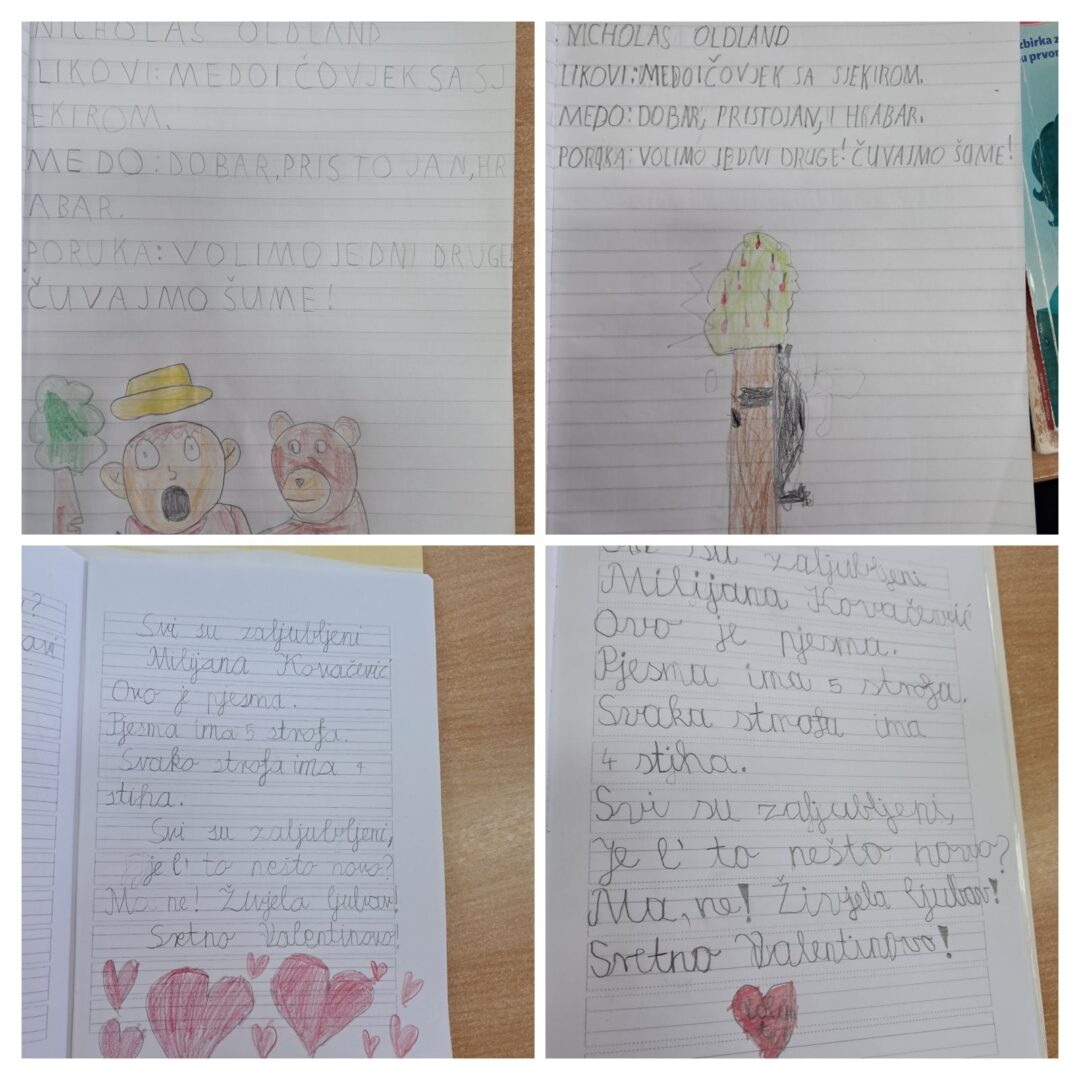 NICHOLAS OLDLAND
LIKOVI: MEDO I ČOVJEK SA SJ
EKIROM.
MEDO: DOBAR, PRISTOJAN, HR
ABAR.
PORUKA: VOLIMO JEDNI DRUGE!
ČUVAJMO ŠUME!
NICHOLAS OLDLAND
LIKOVI: MEDO I ČOVJEK SA SJEKIROM.
MEDO: DOBAR, PRISTOJAN, I HRABAR.
PORUKA: VOLIMO JEDNI DRUGE! ČUVAJMO ŠUME!
zbirka z
u prvon
Svi su zaljubljeni
Milijana Kovačević
Ovo je pjesma.
Pjesma ima 5 strofa.
Svako strofa ima 4
stiha.
Svi su zaljubljeni,
je l' to nešto novo?
Ma ne! Živjela ljubav!
Sretno Valentinovo!
su zaljubljeni
Milijana Kovačević
Ovo je pjesma.
Pjesma ima 5 strofa.
Svaka strofa ima
4 stiha.
Svi su zaljubljeni,
Je l' to nešto novo?
Ma, ne! Živjela ljubav!
Sretno Valentinovo!